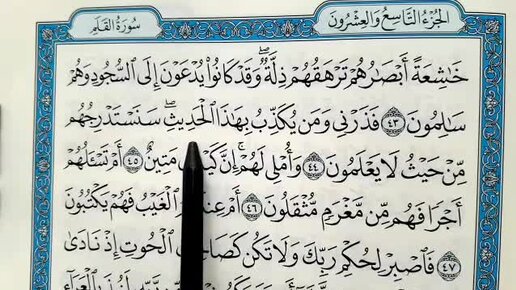 الجُزْءُ التَّاسِعُ وَالعِشْرُونَ
سُورَةُ القَلَمِ
خَٰشِعَةً أَبْصَٰرُهُمْ تَرْهَقُهُمْ ذِلَّةٌۖ وَقَدْ كَانُوا۟ يُدْعَوْنَ إِلَى ٱلسُّجُودِ وَهُمْ
سَٰلِمُونَ ٤٣ فَذَرْنِى وَمَن يُكَذِّبُ بِهَٰذَا ٱلْحَدِيثِۖ سَنَسْتَدْرِجُهُم
مِّنْ حَيْثُ لَا يَعْلَمُونَ ٤٤ وَأُمْلِى لَهُمْۚ إِنَّ مَتِينٌ ٤٥ أَمْ تَسْـَٔلُهُمْ
أَجْرًا فَهُم مِّن مَّغْرَمٍ مُّثْقَلُونَ ٤٦ أَمْ ٱلْغَيْبُ فَهُمْ يَكْتُبُونَ
٤٧ فَٱصْبِرْ لِحُكْمِ رَبِّكَ وَلَا تَكُن ٱلْحُوتِ إِذْ نَادَىٰ